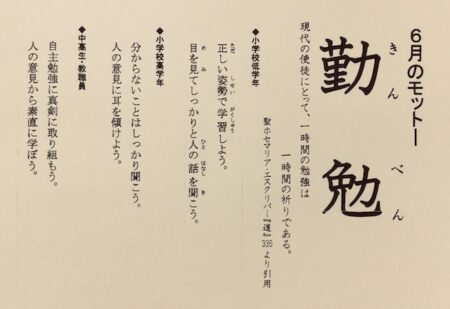 6月のモットー
勤勉
きんべん
現代の使徒にとって、一時間の勉強は
一時間の祈りである。
聖ホセマリア・エスクリバー『道』335より引用
◆小学校低学年
正しい姿勢で学習しよう。
ただ しせい がくしゅう
目を見てしっかりと人の話を聞こう。
め み ひと はなし き
◆小学校高学年
分からないことはしっかり聞こう。
人の意見に耳を傾けよう。
◆中高生・教職員
自主勉強に真剣に取り組もう。
人の意見から素直に学ぼう。